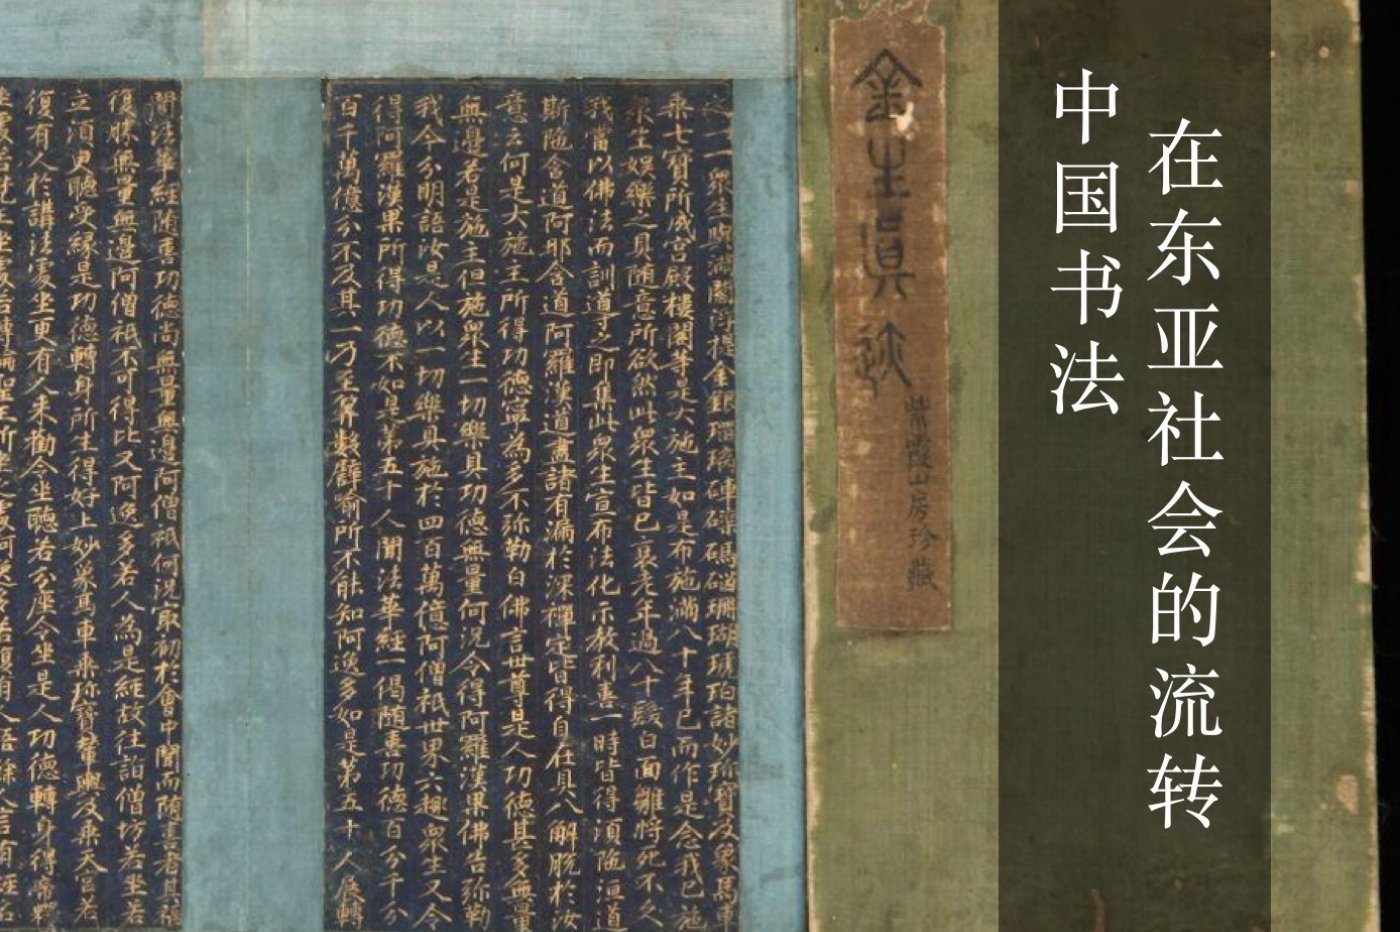 中国书法
在东亚社会的流转
金生眞迹
紫霞山房珍藏
之一一眾生與滿閻浮提金銀瑠璃硨磲碼碯珊瑚琥珀諸妙珍寶及象馬車
乘七寶所成宮殿樓閣等是大施主如是布施滿八十年已而作是念我已施
眾生娛樂之具隨意所欲然此眾生皆已衰老年過八十髮白面皺將死不久
我當以佛法而訓導之即集此眾生宣布法化示教利喜一時皆得須陁洹道
斯陁含道阿那含道阿羅漢道盡諸有漏於深禪定皆得自在具八解脫於汝
意云何是大施主所得功德寧為多不弥勒白佛言世尊是人功德甚多無量
無邊若是施主但施眾生一切樂具功德無量何況令得阿羅漢果佛告弥勒
我今分明語汝是人以一切樂具施於四百萬億阿僧祇世界六趣眾生又令
得阿羅漢果所得功德不如是第五十人聞法華經一偈隨喜功德百分千分
百千萬億分不及其一乃至算數譬喻所不能知阿逸多如是第五十人展轉
聞法華經隨喜功德尚無量無邊阿僧祇何況最初於會中聞而隨喜者其福
復勝無量無邊阿僧祇不可得比又阿逸多若人為是經故往詣僧坊若坐若
立須臾聽受緣是功德轉身所生得好上妙象馬車乘珍寶輦輿及乘天宮若
復有人於講法處坐更有人來勸令坐聽若分座令坐是人功德轉身得帝釋